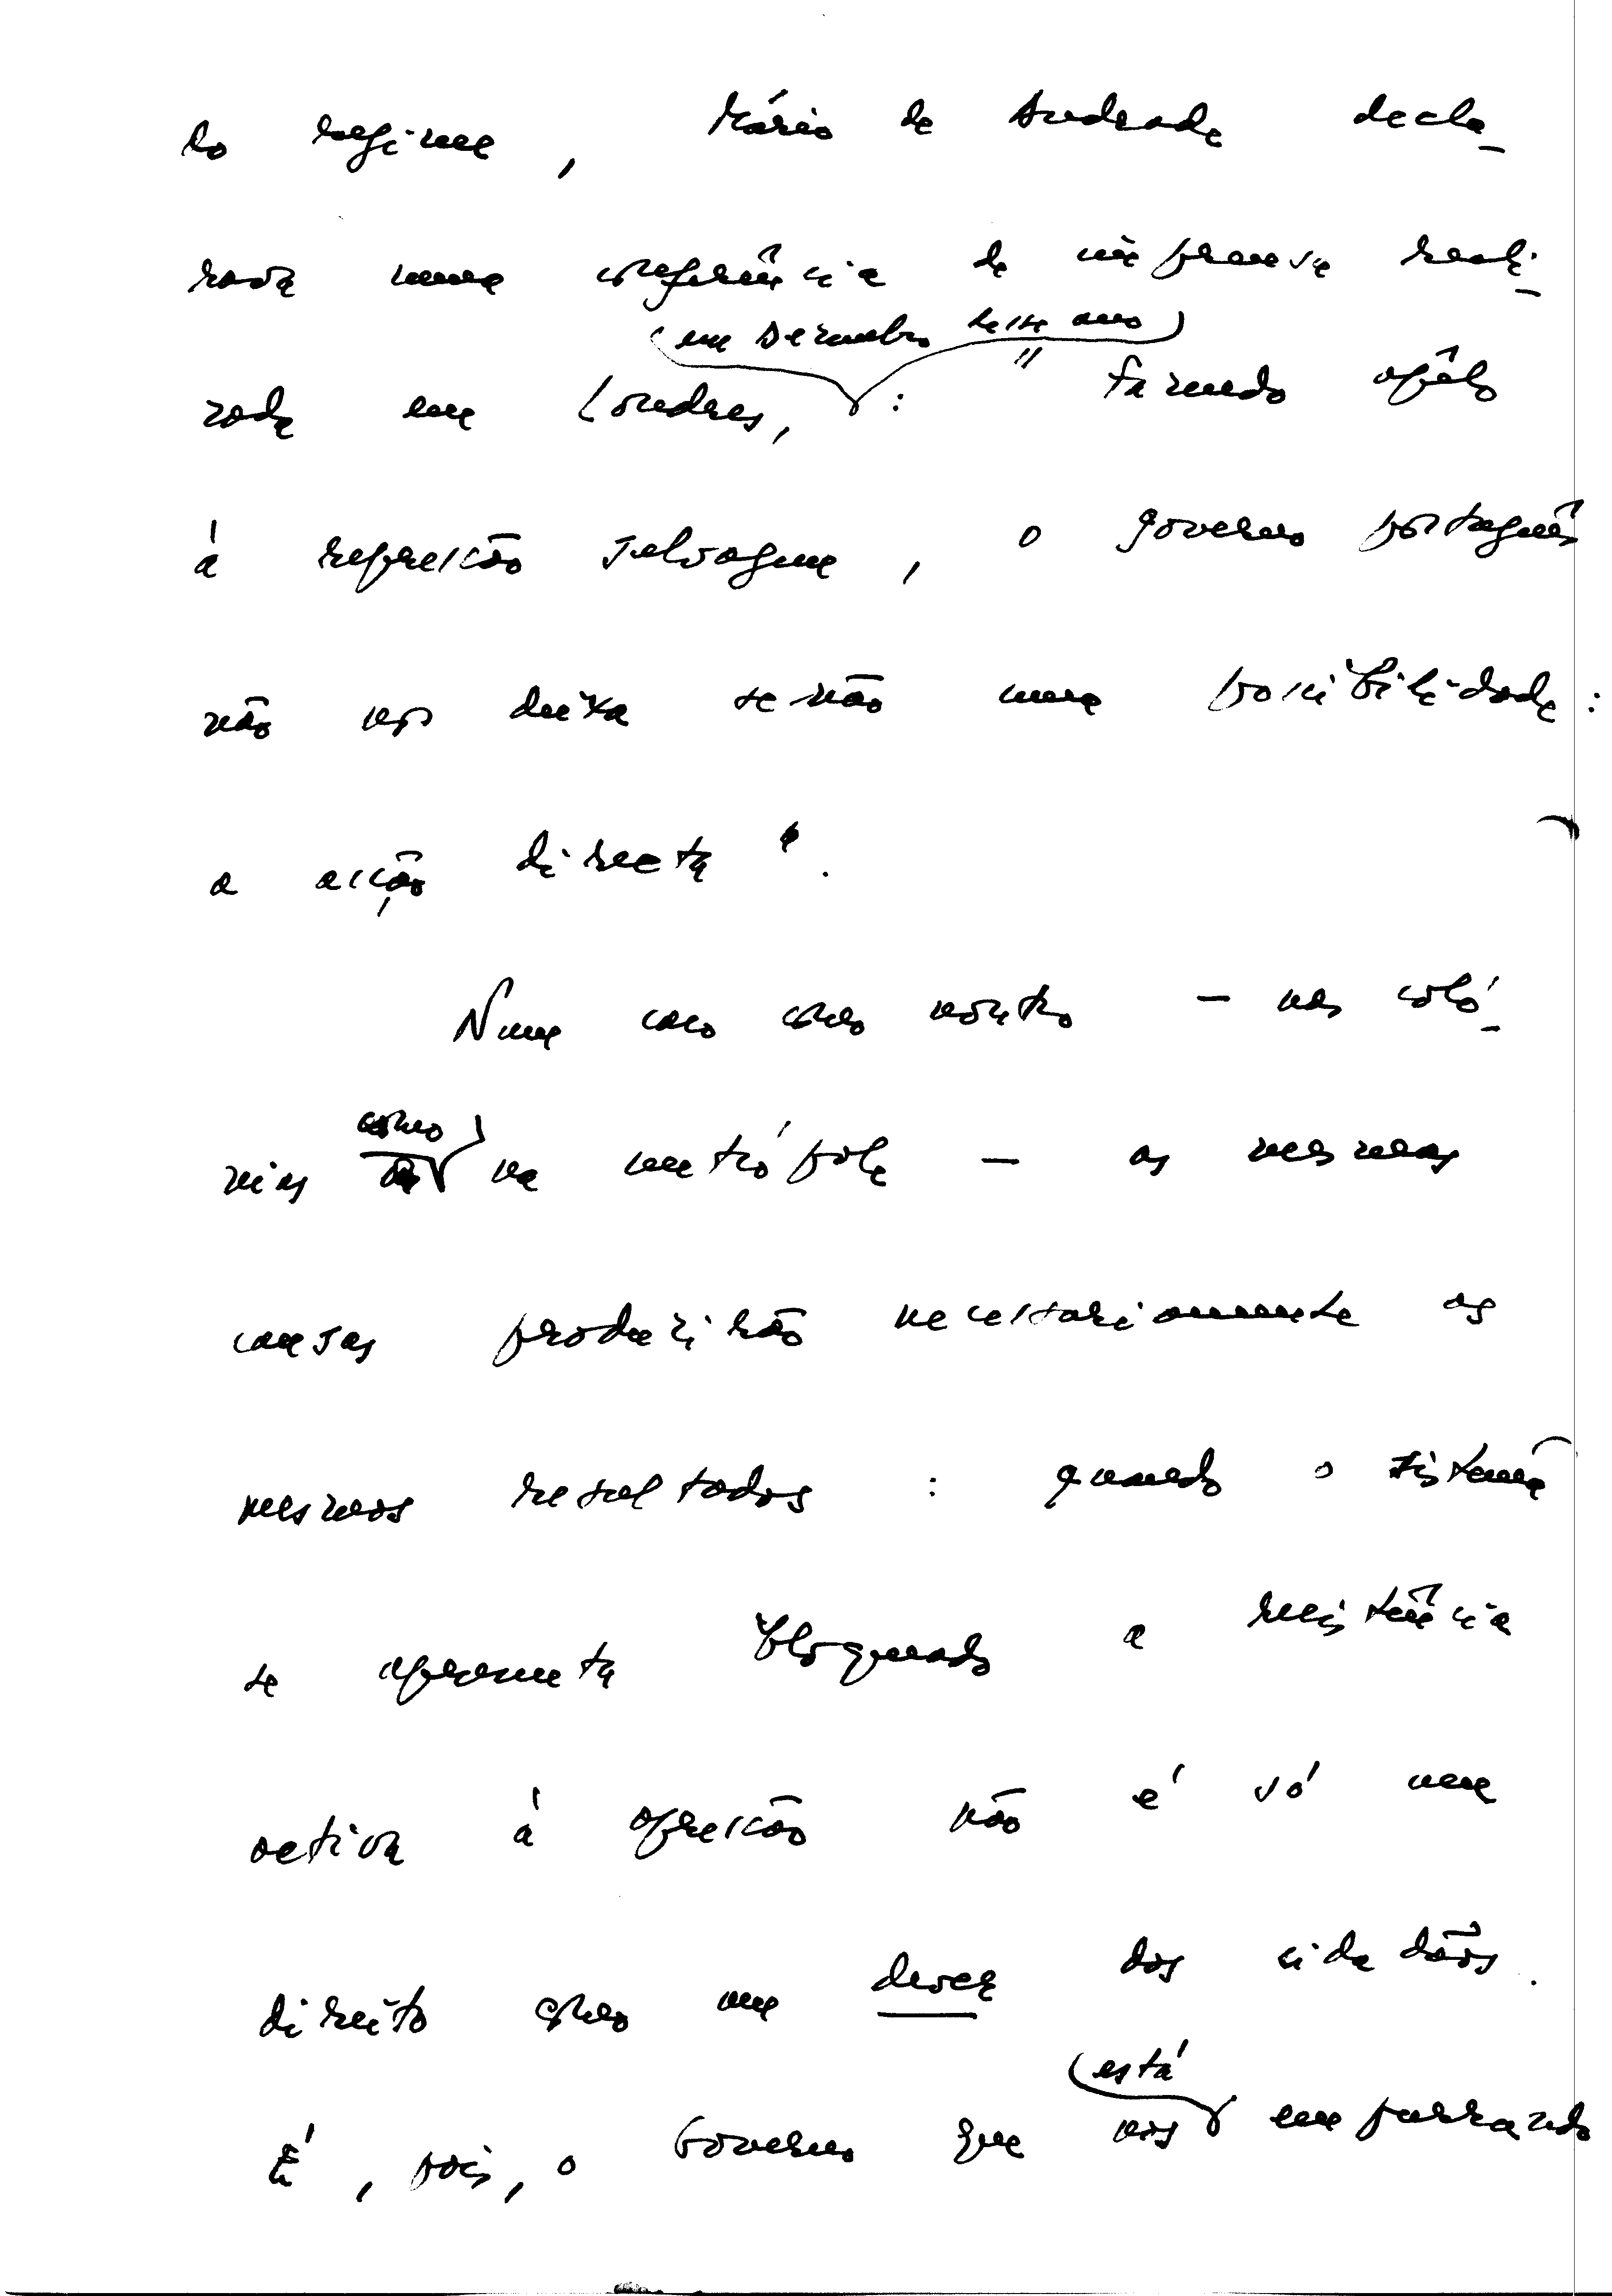 do regime, Mário de Andrade decla-
rava numa conferência de imprensa reali-
(em Dezembro desse ano)
zada em Londres, : "Fazendo apêlo
à repressão selvagem, o governo português
não nos deixa senão uma possibilidade:
a acção directa".
Num caso como noutro - nas coló-
como
nias na metrópole - as mesmas
causas produzirão necessariamente os
mesmos resultados: quando o sistema
se apresenta bloqueado a resistência
activa à opressão não é só um
direito como um dever dos cidadãos.
(está
É, pois, o Governo que nos empurrando